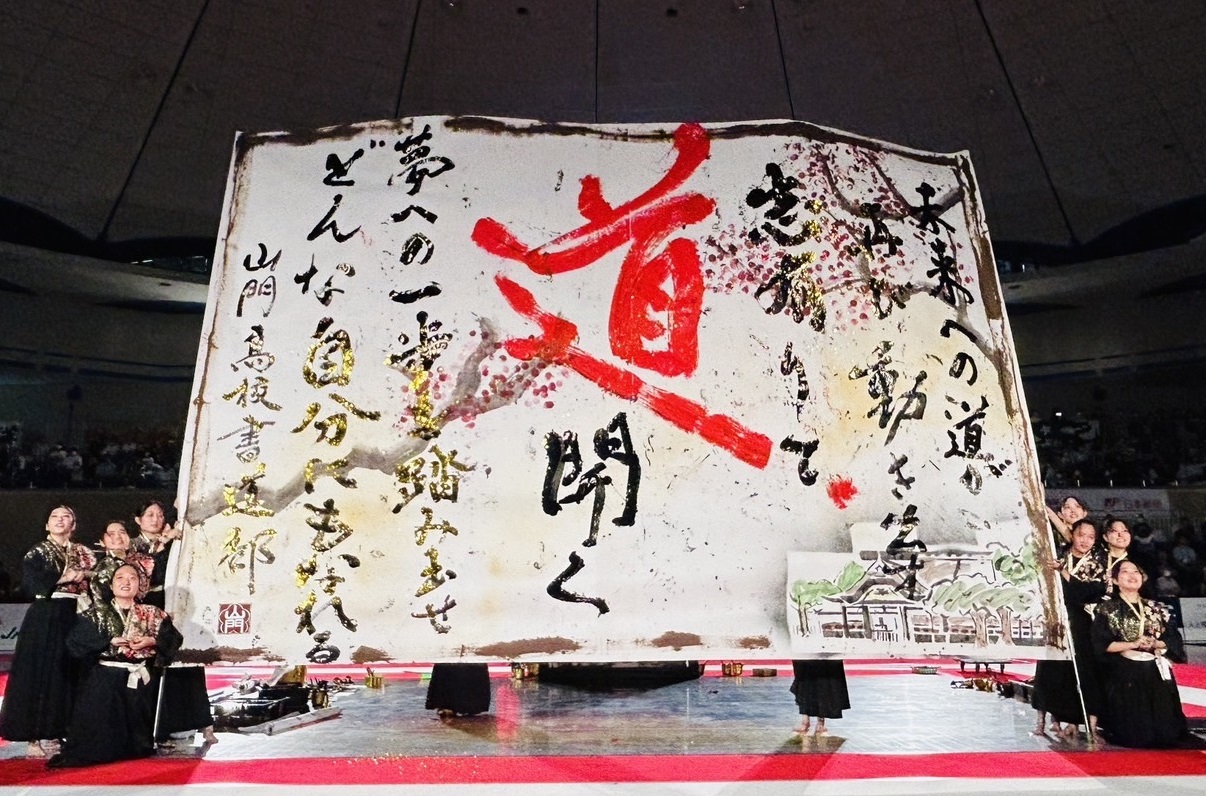 未来への道が
再び動き出す
志
道
開く
夢への一歩を踏みだせ
どんな自分にもなれる
山門高校書道部